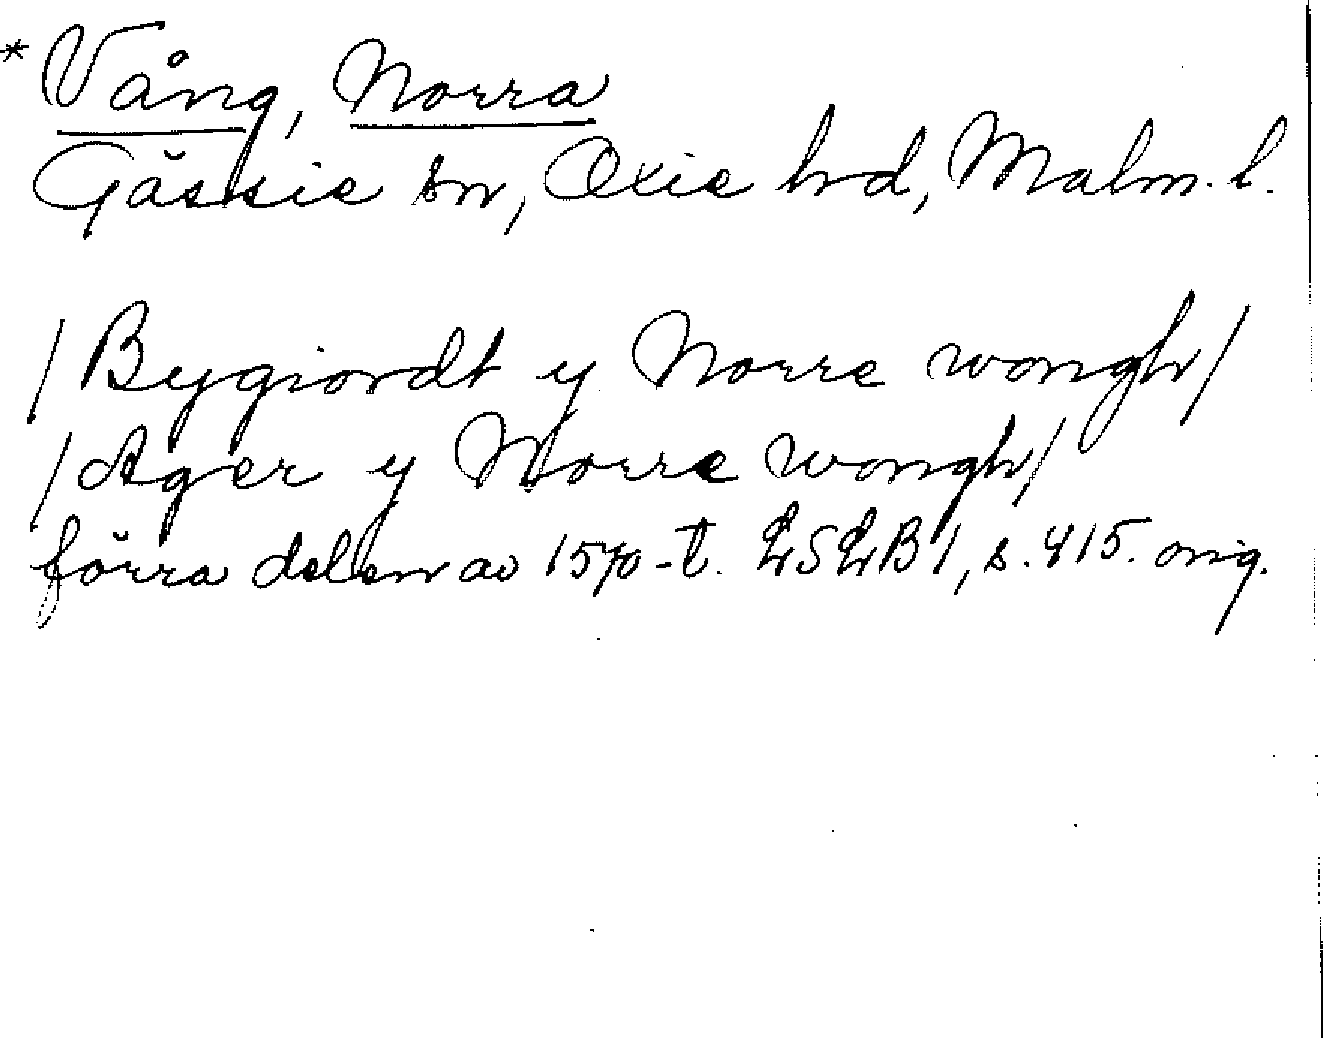 * Vång, Norra
Gässie sn, Oxie hrd, Malm. l.
/Bygiordt y Norre wongh/
/Ager y Norre wongh/
förra delen av 1570-t. LSLB 1, s. 415. orig.